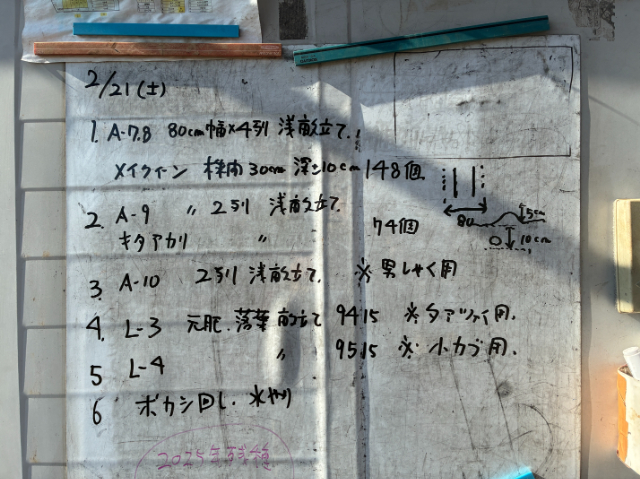 2/21(土)
1. A-7.8 80cm幅×4列 浅畝立て.
メイクイーン 株間30cm 深さ10cm 148個.
80 5cm
10cm
2. A-9 〃 2列 浅畝立て.
キタアカリ 〃 74個
3. A-10 2列 浅畝立て. ※男しゃく用
4. L-3 元肥. 落葉 畝立て 9415 ※タアツァイ用.
5 L-4 〃 9515 ※小カブ用.
6 ボカシ回し. 水やり
2025年